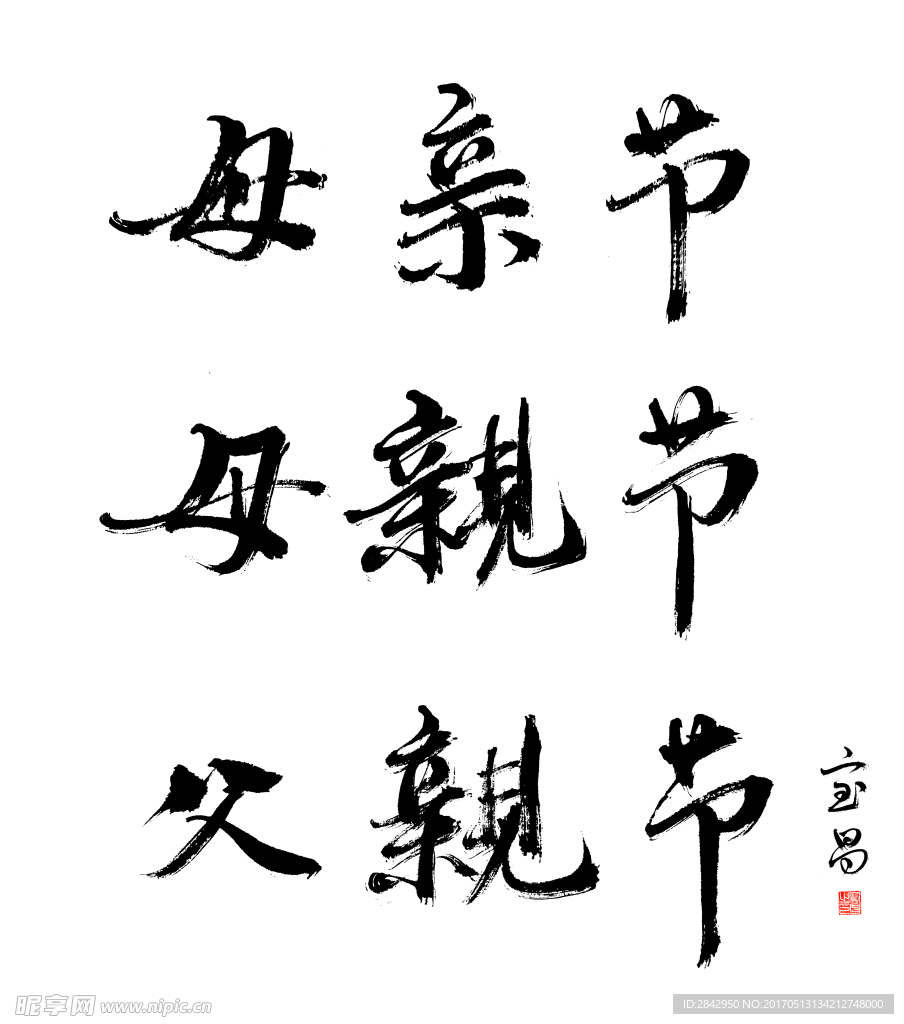 母亲节
母親节
父親节
宝昌
昵享网 www.nipic.cn
ID:2842950 NO:20170513134212748000